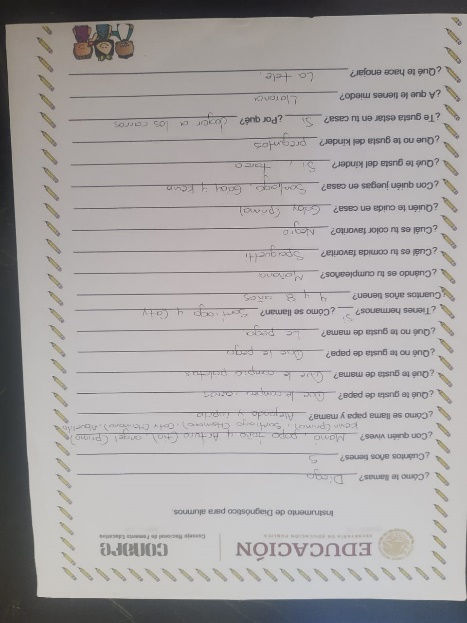 EDUCACIÓN
SECRETARÍA DE EDUCACIÓN PÚBLICA
CONAFE
Consejo Nacional de Fomento Educativo
Instrumento de Diagnóstico para alumnos.
¿Cómo te llamas? Diego
¿Cuántos años tienes? 5
¿Con quién vives? Mamá, papa, Arturo (tio), angel (primo)
Kevin (primo), Santiago (Hermano), Caty (Hermana), Abuelitos
¿Cómo se llama papa y mama? Alejandro y
¿Qué te gusta de papa? Que le compre carros
¿Qué te gusta de mama? Que le compre paletas
¿Qué no te gusta de papa? Que le pega
¿Qué no te gusta de mama? Le pega
¿Tienes hermanos? Si ¿Cómo se llaman? Santiago y Caty
Cuantos años tienen? 4 y 8 años
¿Cuándo es tu cumpleaños? Mañana
¿Cuál es tu comida favorita? Spaguetti
¿Cuál es tu color favorito? Negro
¿Quién te cuida en casa? (prima)
¿Con quién juegas en casa? Santiago y Kevin
¿Qué te gusta del kinder? Si,
¿Que no te gusta del kinder? preguntas
¿Te gusta estar en tu casa? Si ¿Por qué? Jugar a los carros
¿A que le tienes miedo? Llorona
¿Qué te hace enojar? La tele.